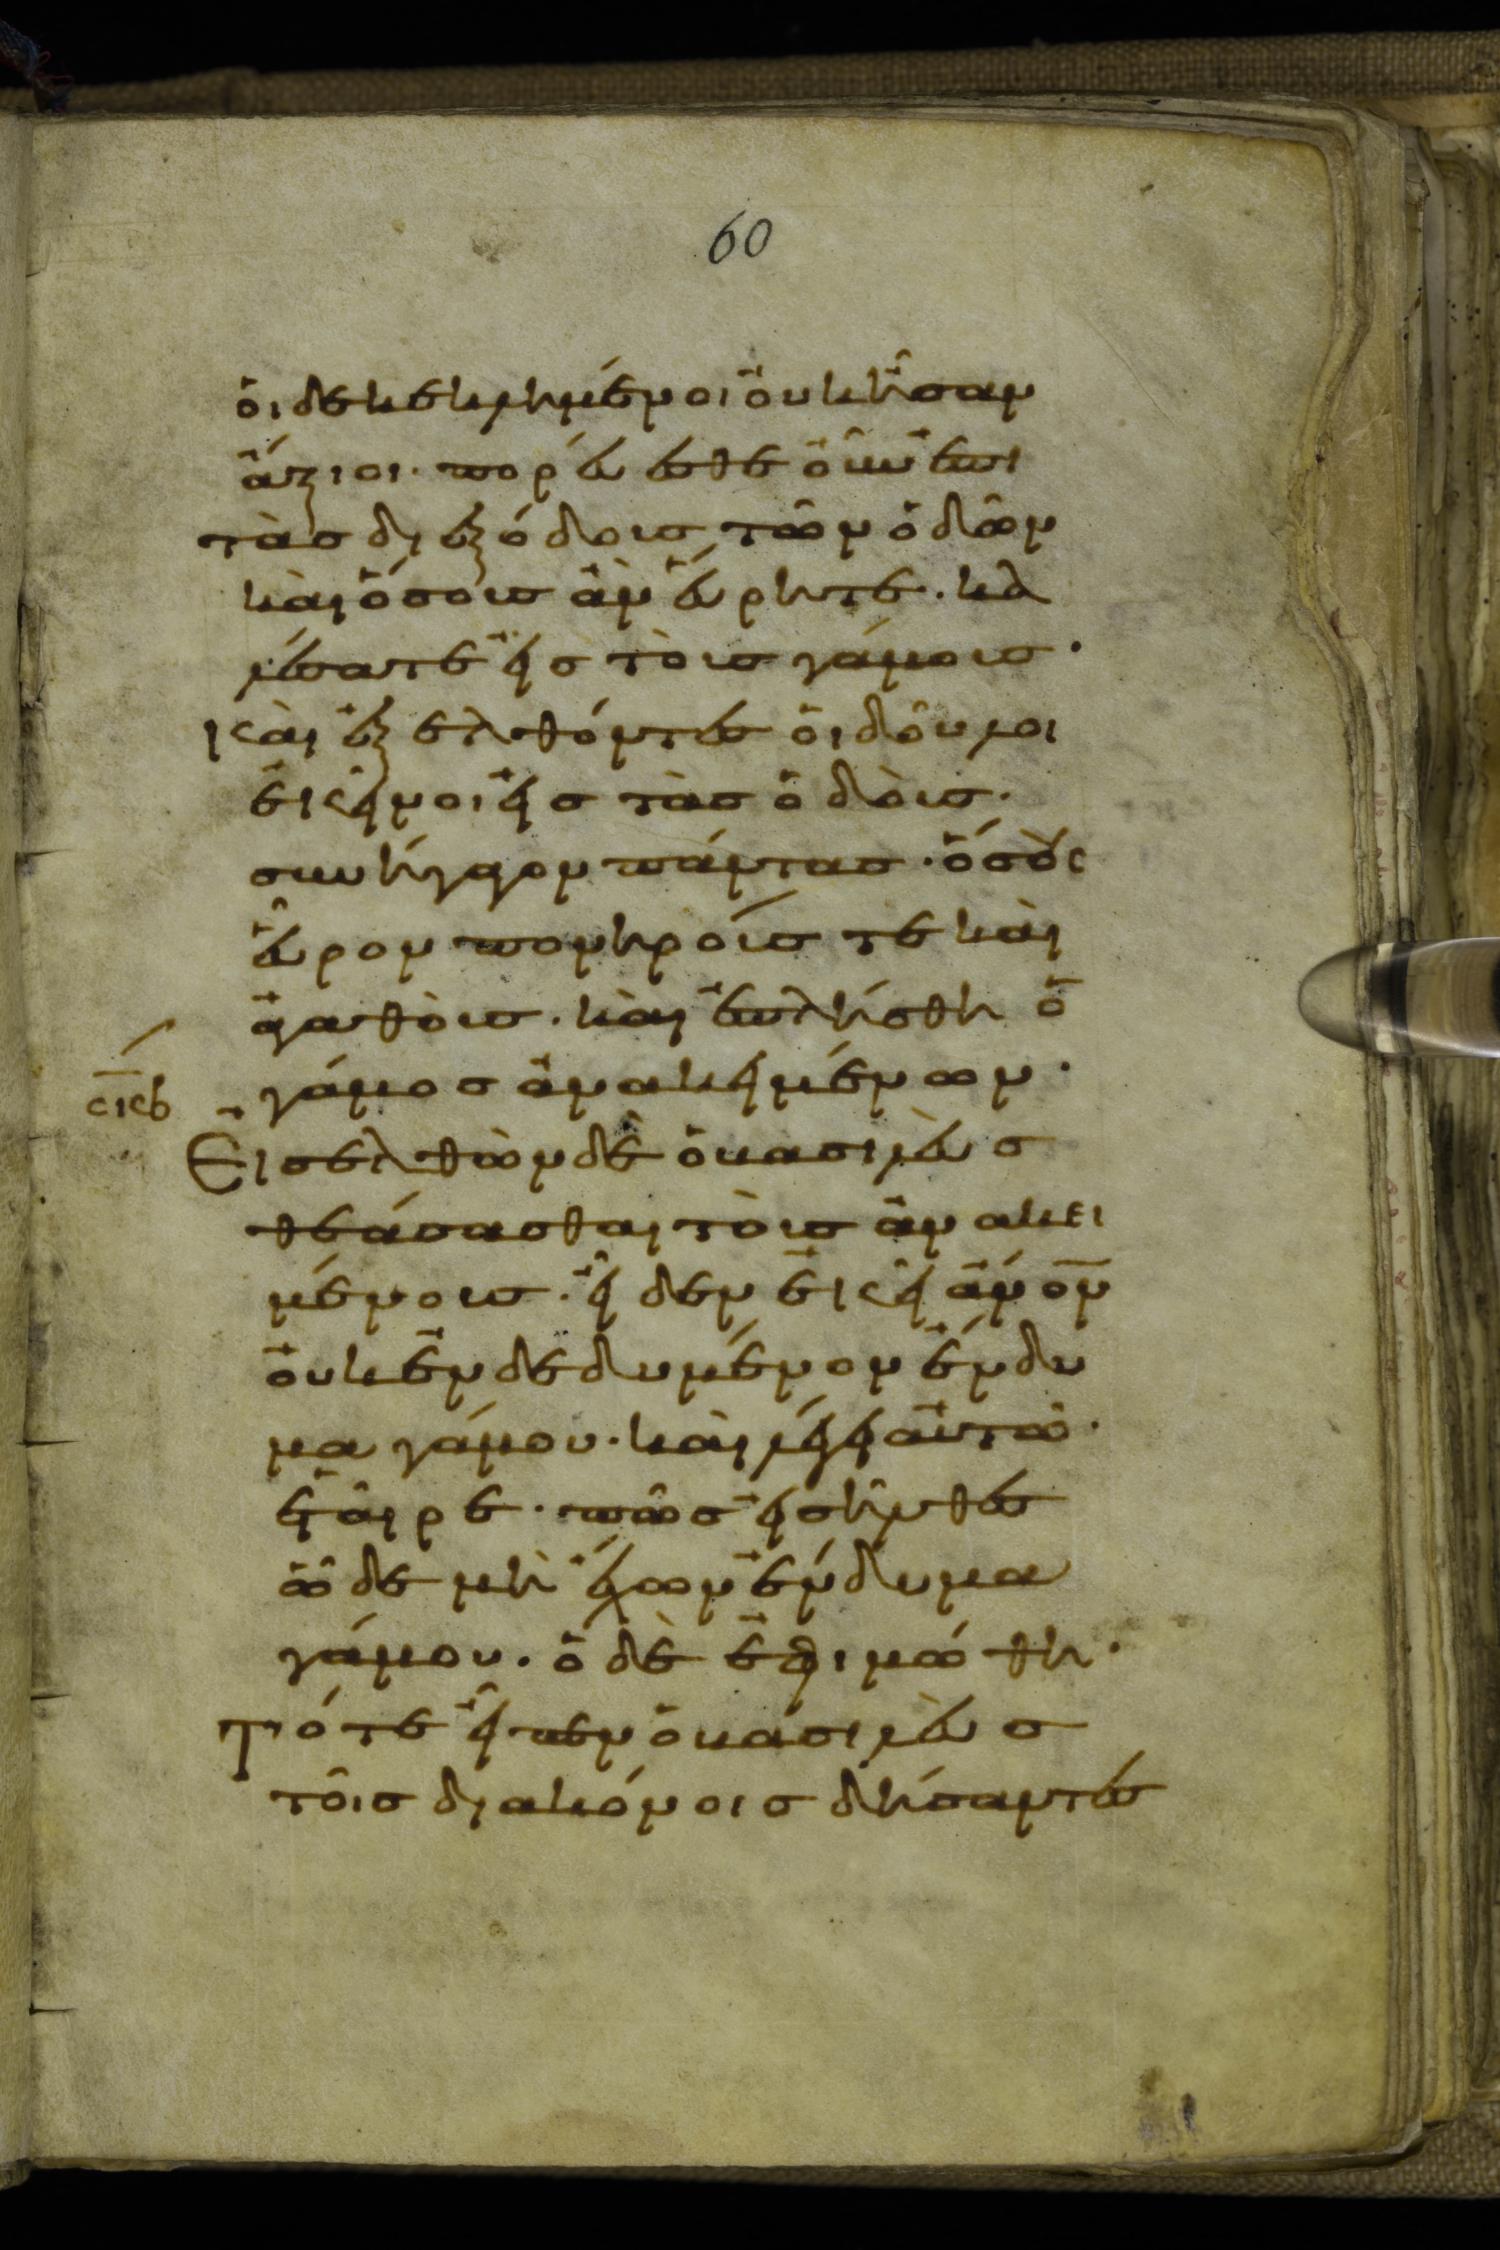 60
ὁι δε κεκλημένοι ὀυκ ἦσαν
ἄξιοι. πορέυεσθε ὀῦν ἐπι
τὰσ διεξόδουσ τῶν ὁδῶν
κὰι ὅσουσ ἂν ἕυρητε. κα
λέσατε ἐισ τὸυσ γάμουσ.
κὰι ἐξελθόντεσ ὁι δοῦλοι
ἐκεῖνοι ἐισ τὰσ ὁδὸυσ.
συνήγαγον πάντασ. ὅσους
ἕυρον πονηρόυσ τε κὰι
ἀγαθὸυσ. κὰι ἐπλήσθη ὁ
γάμοσ ἀνακειμένων.
Ἐισελθὼν δὲ ὁ βασιλέυσ
θεάσασθαι τὸυσ ἀνακει
μένουσ. εἶδεν ἐκεῖ ἄν̅ο̅ν̅
ὀυκ ἐνδεδυμένον ἔνδυ
μα γάμου. κὰι λέγει ἀυτῶ.
ἑταῖρε. πῶσ ἐισῆλθεσ
ὧδε μὴ ἔχων ἔνδυμα
γάμου. ὁ δὲ ἐφιμώθη.
Τότε εἶπεν ὁ βασιλέυσ
τοῖσ διακόνοισ δήσαντεσ